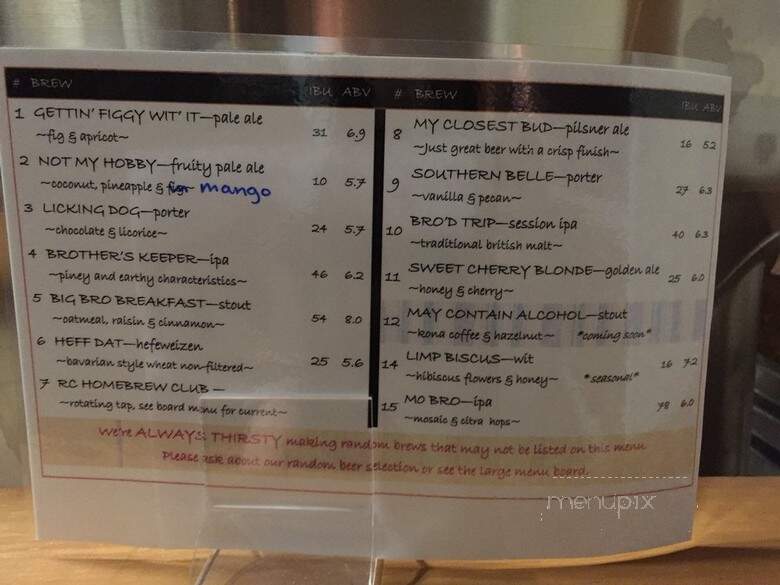 # BREW IBU ABV
1 GETTIN' FIGGY WIT' IT—pale ale
~fig & apricot~ 31 6.9
2 NOT MY HOBBY—fruity pale ale
~coconut, pineapple & mango 10 5.7
3 LICKING DOG—porter
~chocolate & licorice~ 24 5.7
4 BROTHER'S KEEPER—ipa
~piney and earthy characteristics~ 46 6.2
5 BIG BRO BREAKFAST—stout
~oatmeal, raisin & cinnamon~ 54 8.0
6 HEFF DAT—hefeweizen
~bavarian style wheat non-filtered~ 25 5.6
7 RC HOMEBREW CLUB —
~rotating tap, see board menu for current~
# BREW IBU ABV
8 MY CLOSEST BUD—pilsner ale
~Just great beer with a crisp finish~ 16 5.2
9 SOUTHERN BELLE—porter
~vanilla & pecan~ 27 6.3
10 BRO'D TRIP—session ipa
~traditional british malt~ 40 6.3
11 SWEET CHERRY BLONDE—golden ale
~honey & cherry~ 25 6.0
12 MAY CONTAIN ALCOHOL—stout
~kona coffee & hazelnut~ *coming soon*
14 LIMP BISCUS—wit
~hibiscus flowers & honey~ *seasonal* 16 7.2
15 MO BRO—ipa
~mosaic & citra hops~ 78 6.0
We're ALWAYS THIRSTY making random brews that may not be listed on this menu
Please ask about our random beer selection or see the large menu board.
menupix